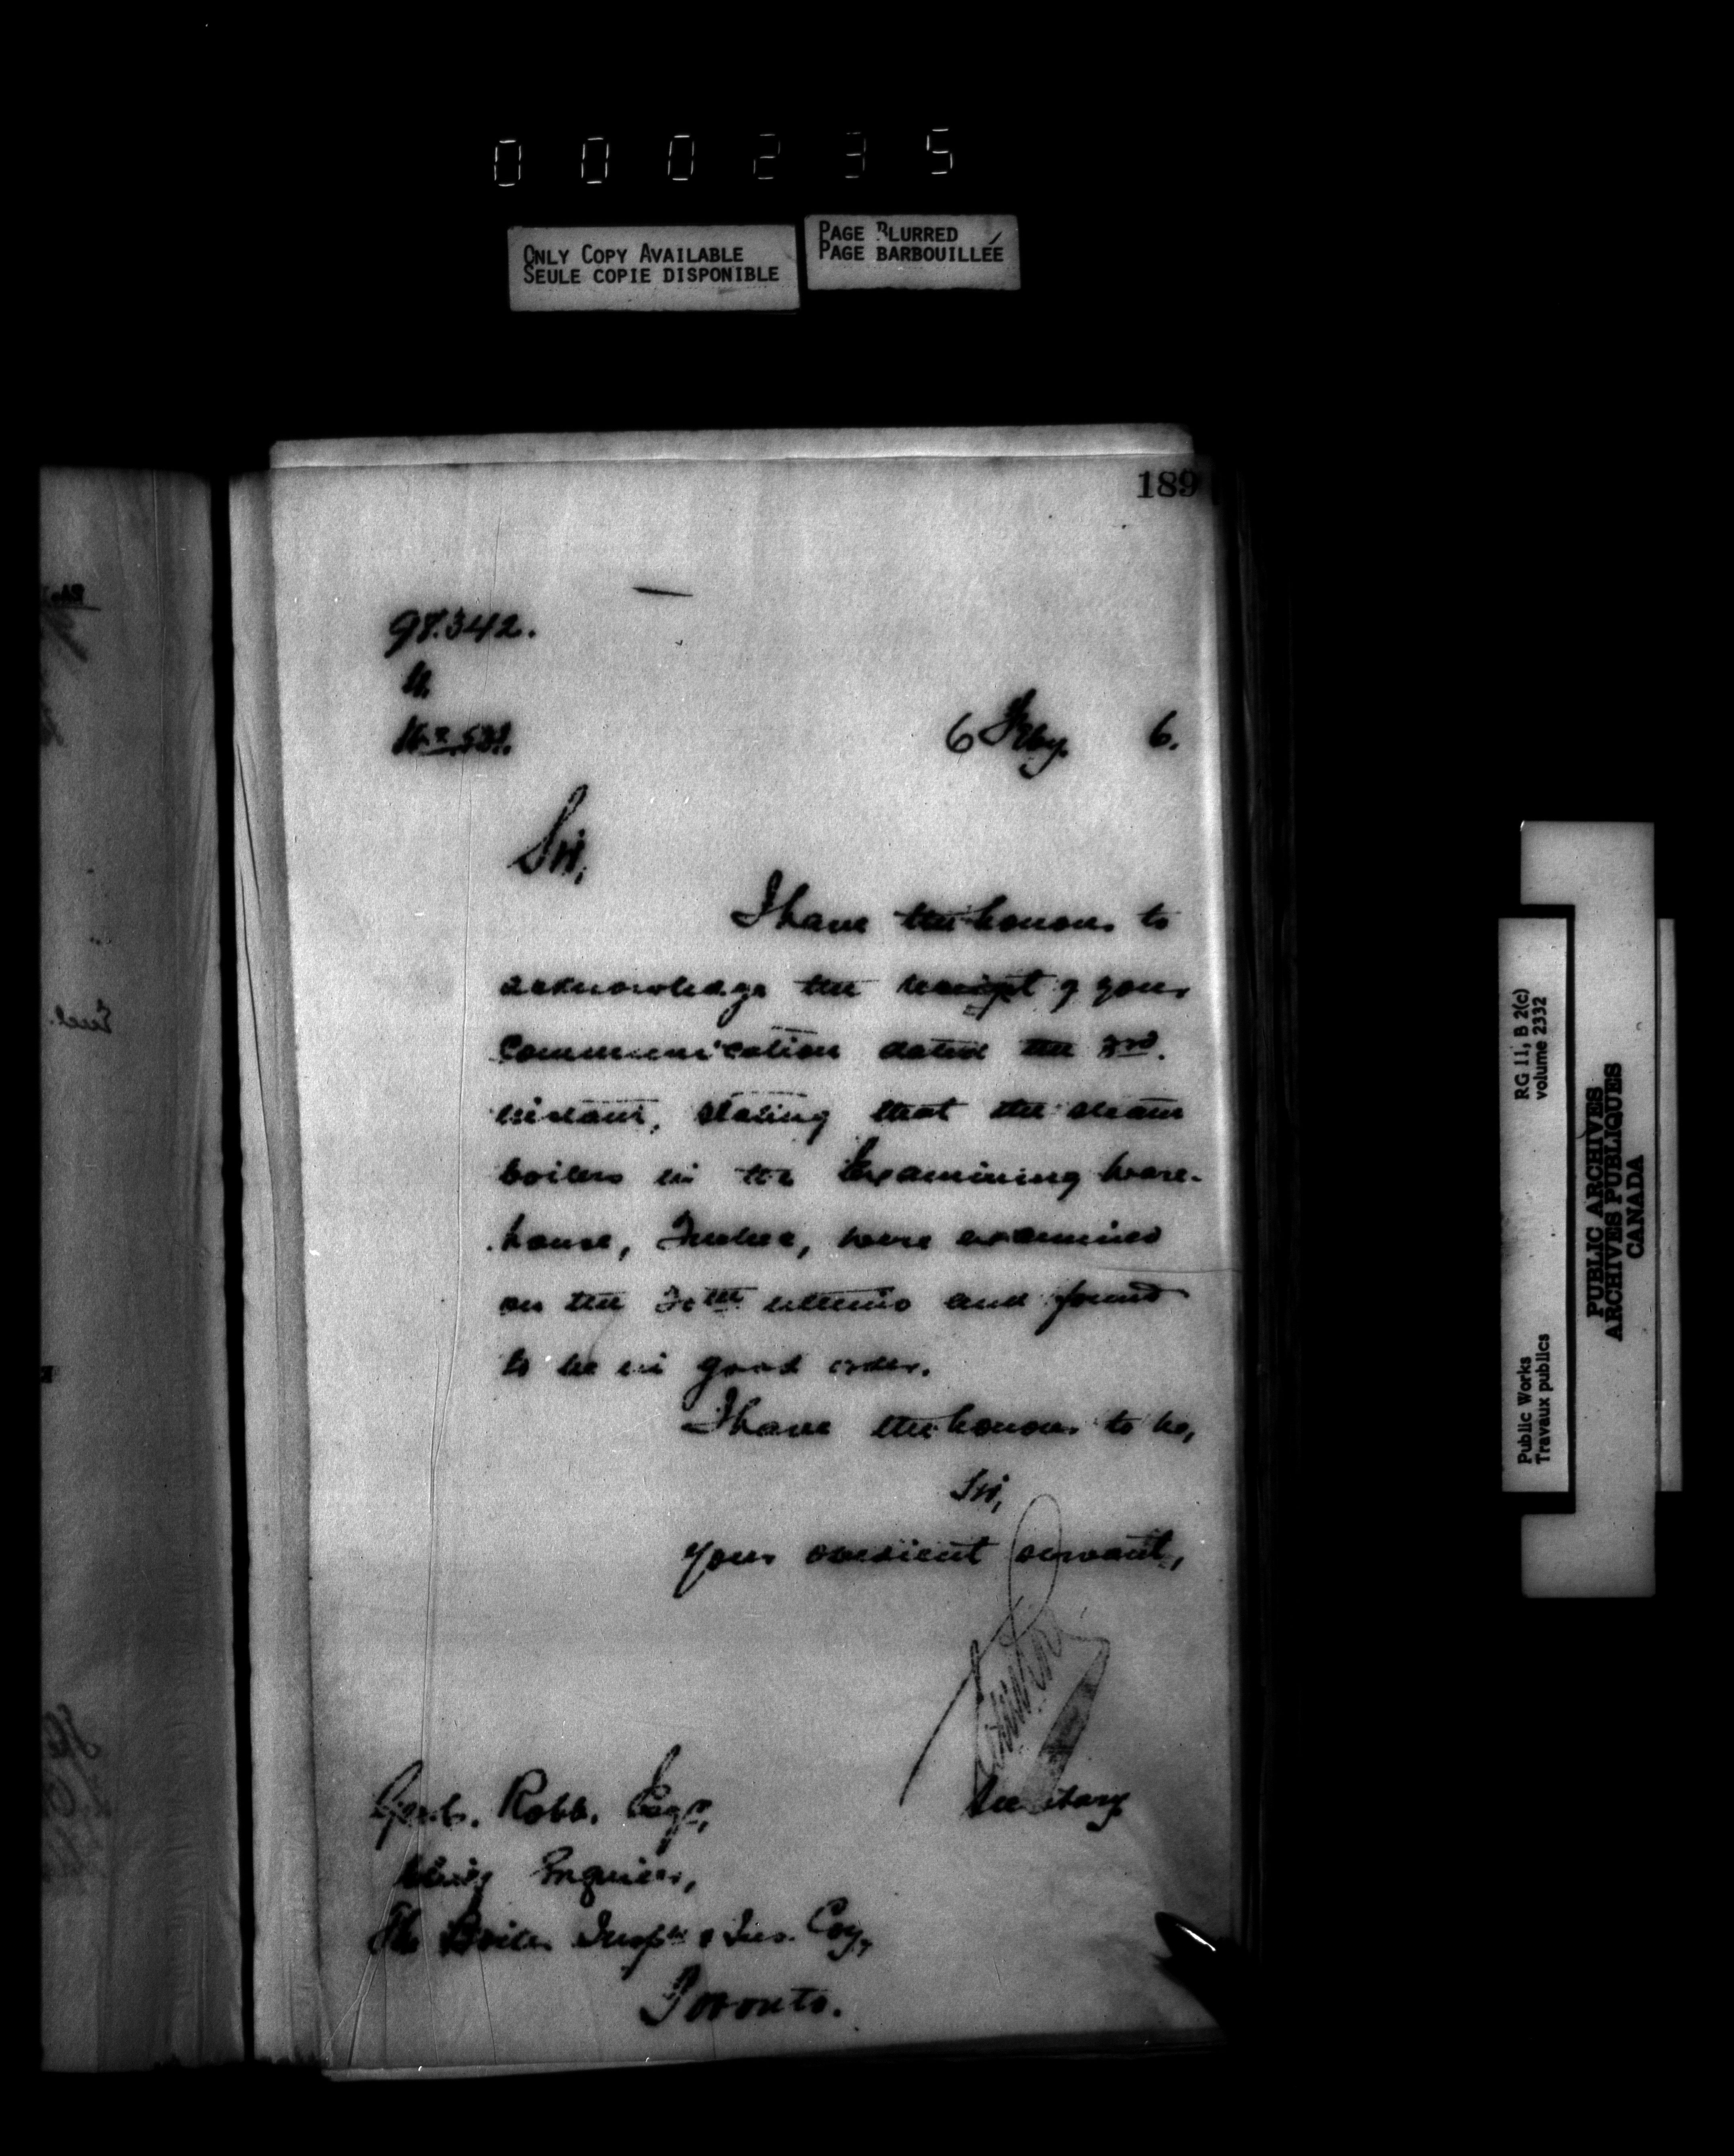 000235
ONLY COPY AVAILABLE
SEULE COPIE DISPONIBLE
PAGE BLURRED
PAGE BARBOUILLÉE
189
98.342.
6 Feby. 6.
Sir,
I have the honour to
acknowledge the receipt of your
communication dated the 3rd.
instant, stating that the steam
boilers in the Examining Ware-
house, Quebec, were examined
on the 20th ultimo and found
to be in good order.
I have the honour to be,
Sir,
Your obedient servant,
Secretary
Geo. C. Robb. Esqr,
Chief Engineer,
The Boiler Inspn & Ins. Coy,
Toronto.
RG 11, B 2(c)
volume 2332
Public Works
Travaux publics
PUBLIC ARCHIVES
ARCHIVES PUBLIQUES
CANADA